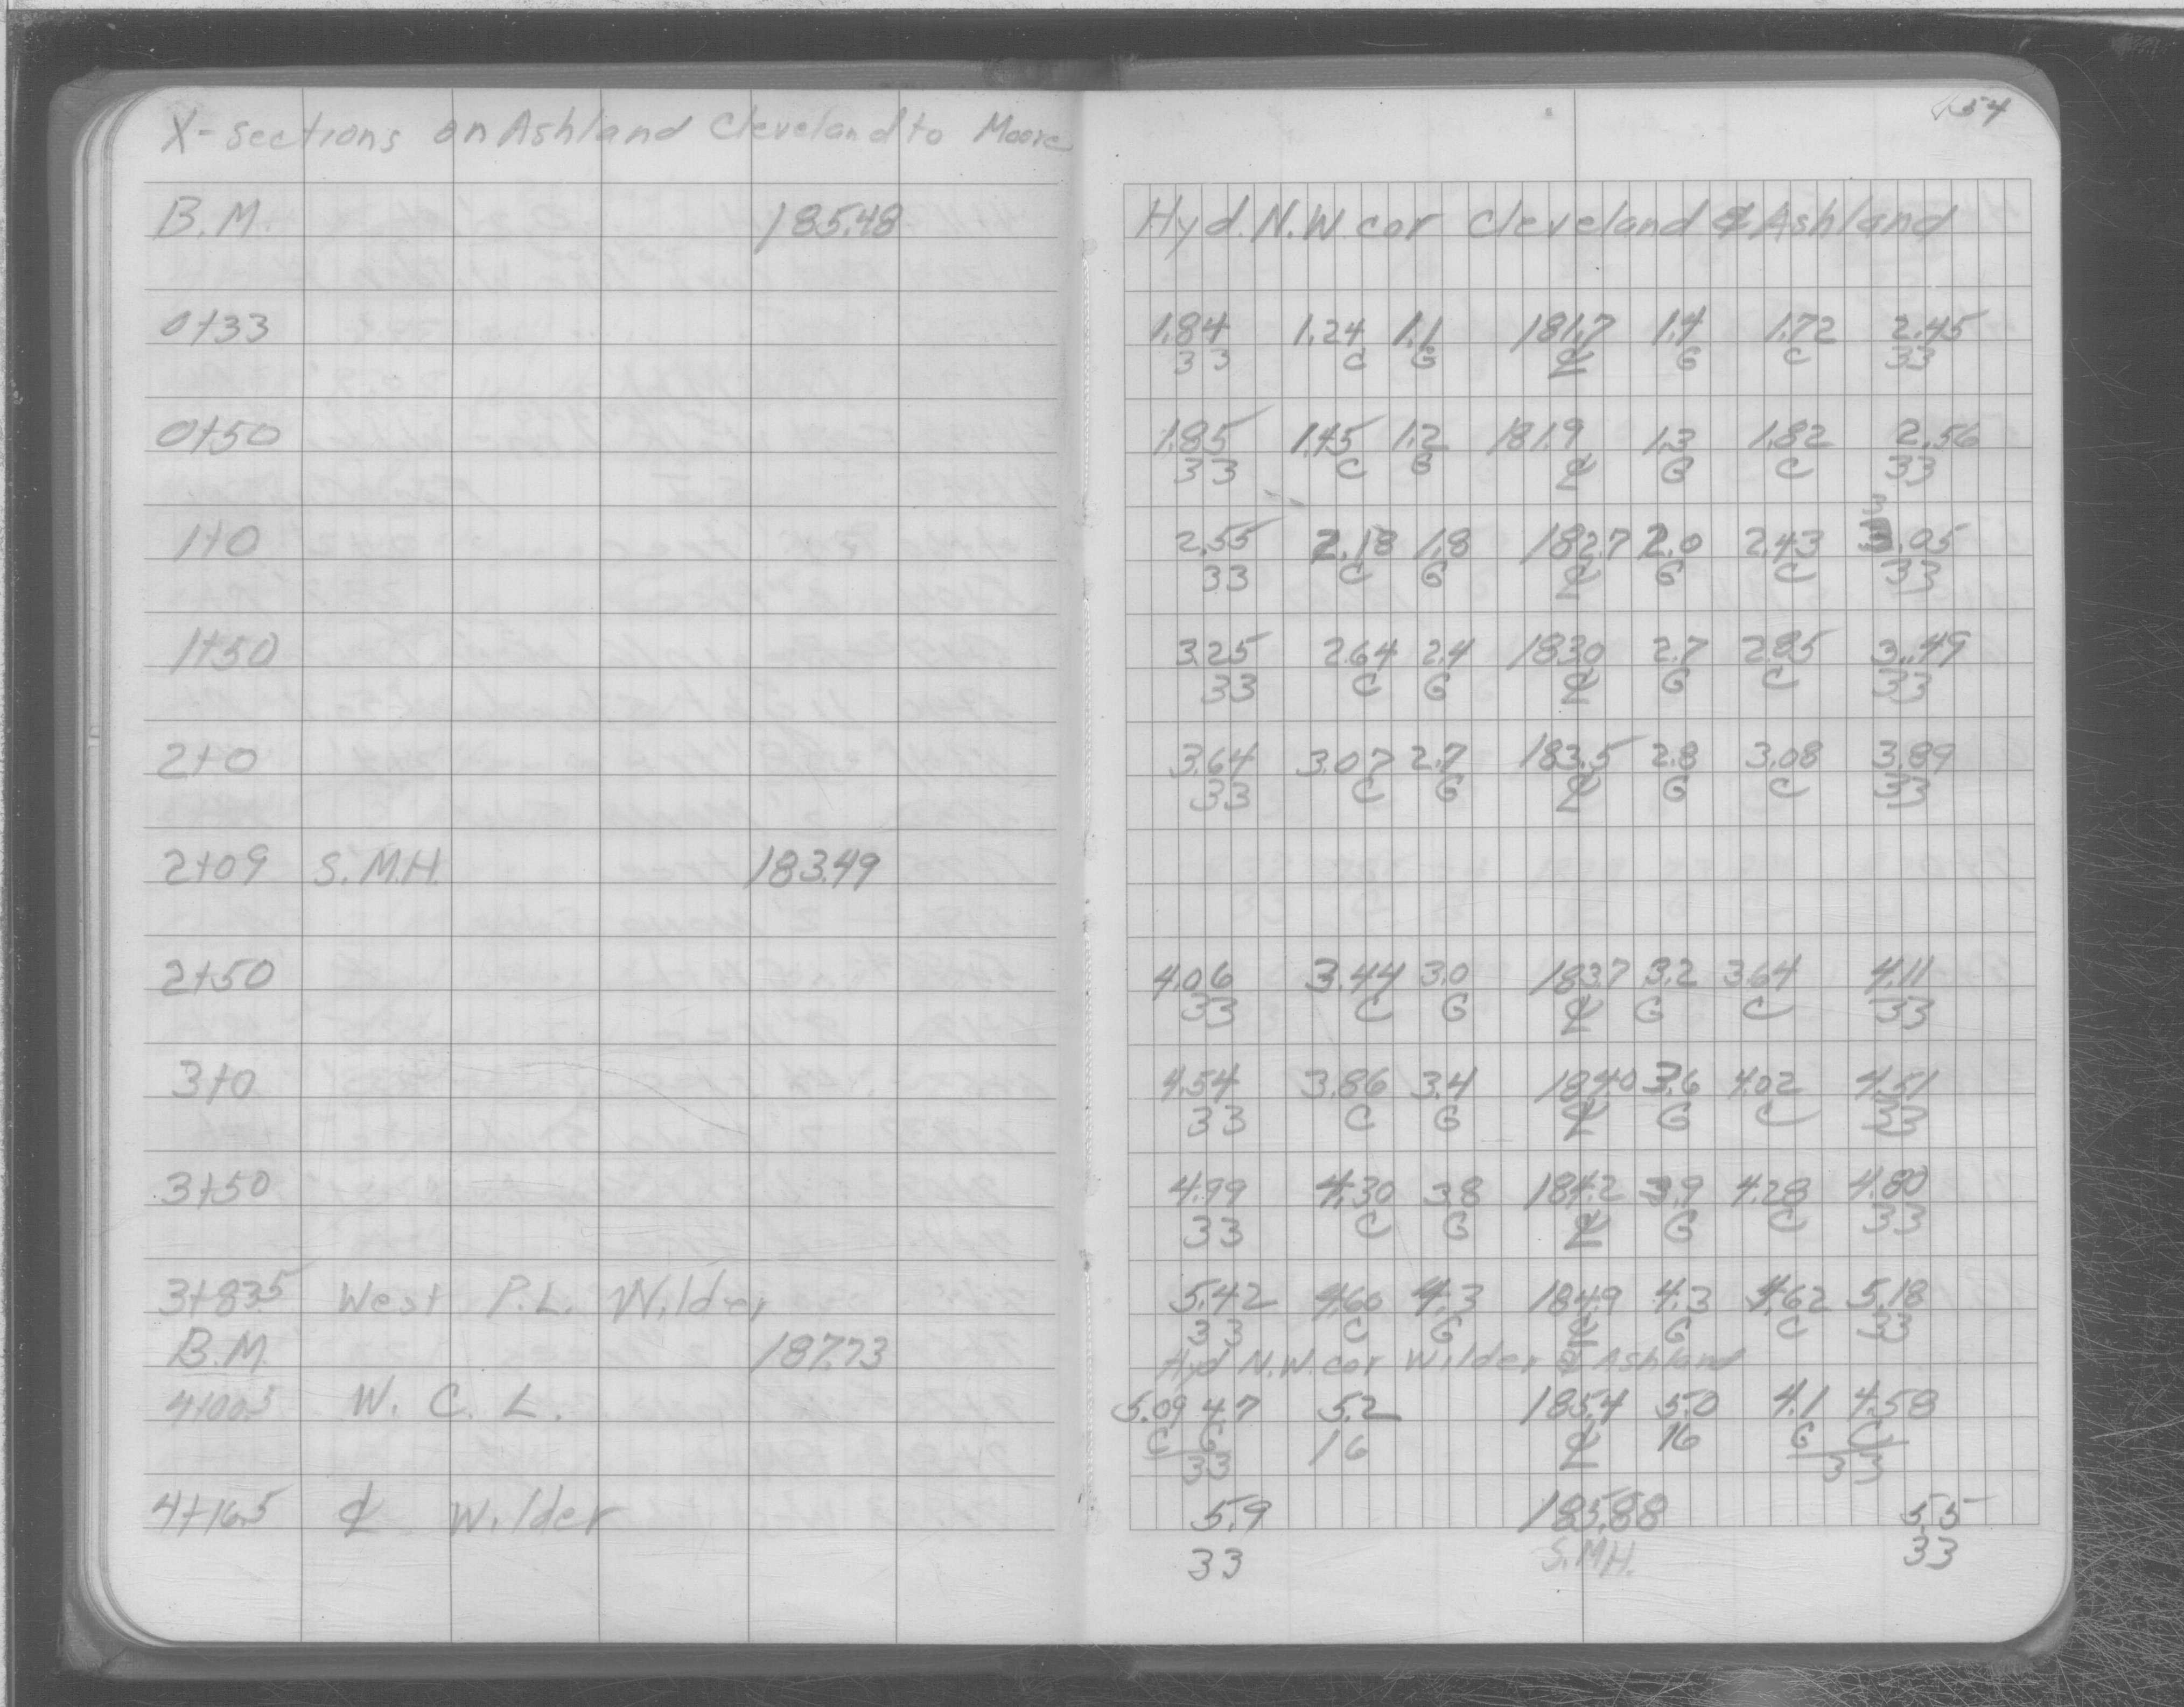 54
X-sections on Ashland Cleveland to Moore
B.M. 185.48 Hyd. N.W. cor Cleveland & Ashland
0+33 1.84 1.24 1.1 181.7 1.4 1.72 2.45
33 C G ℄ G C 33
0+50 1.85 1.45 1.2 181.9 1.3 1.82 2.56
33 C G ℄ G C 33
3
1+0 2.55 2.18 1.8 182.7 2.0 2.43 3.05
33 C G ℄ G C 33
1+50 3.25 2.64 2.4 183.0 2.7 2.85 3.49
33 C G ℄ G C 33
2+0 3.64 3.07 2.7 183.5 2.8 3.08 3.89
33 C G ℄ G C 33
2+09 S.M.H. 183.49
2+50 4.06 3.44 3.0 183.7 3.2 3.64 4.11
33 C G ℄ G C 33
3+0 4.54 3.86 3.4 184.0 3.6 4.02 4.51
33 C G ℄ G C 33
3+50 4.99 4.30 3.8 184.2 3.9 4.28 4.80
33 C G ℄ G C 33
3+83.5 West P.L. Wilder 5.42 4.60 4.3 184.9 4.3 4.62 5.18
33 C G ℄ G C 33
B.M. 187.73 Hyd N.W. cor Wilder & Ashland
4+00.5 W. C. L. 5.09 4.7 5.2 185.4 5.0 4.1 4.58
C G 16 ℄ 16 G C
33 33
4+16.5 ℄ Wilder 5.9 185.88 5.5
33 S.M.H. 33